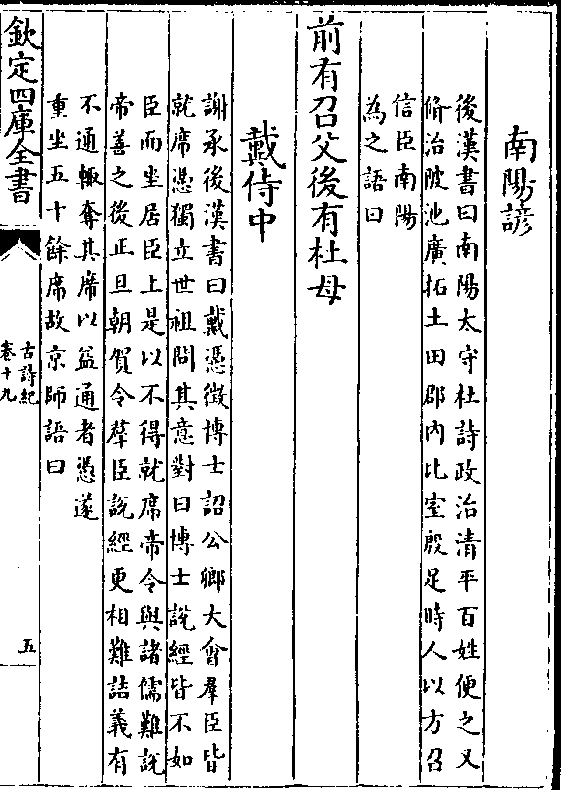 南陽諺
後漢書曰南陽太守杜詩政治清平百姓便之又
脩治陂池廣拓土田郡內比室殷足時人以方召
信臣南陽
為之語曰
前有召父後有杜母
戴侍中
謝承後漢書曰戴憑徵博士詔公卿大會羣臣皆
就席憑獨立世祖問其意對曰博士說經皆不如
臣而坐居臣上是以不得就席帝令與諸儒難說
帝善之後正旦朝賀令羣臣說經更相難詰義有
不通輙奪其席以益通者憑遂
重坐五十餘席故京師語曰
欽定四庫全書
古詩紀
卷十九
五